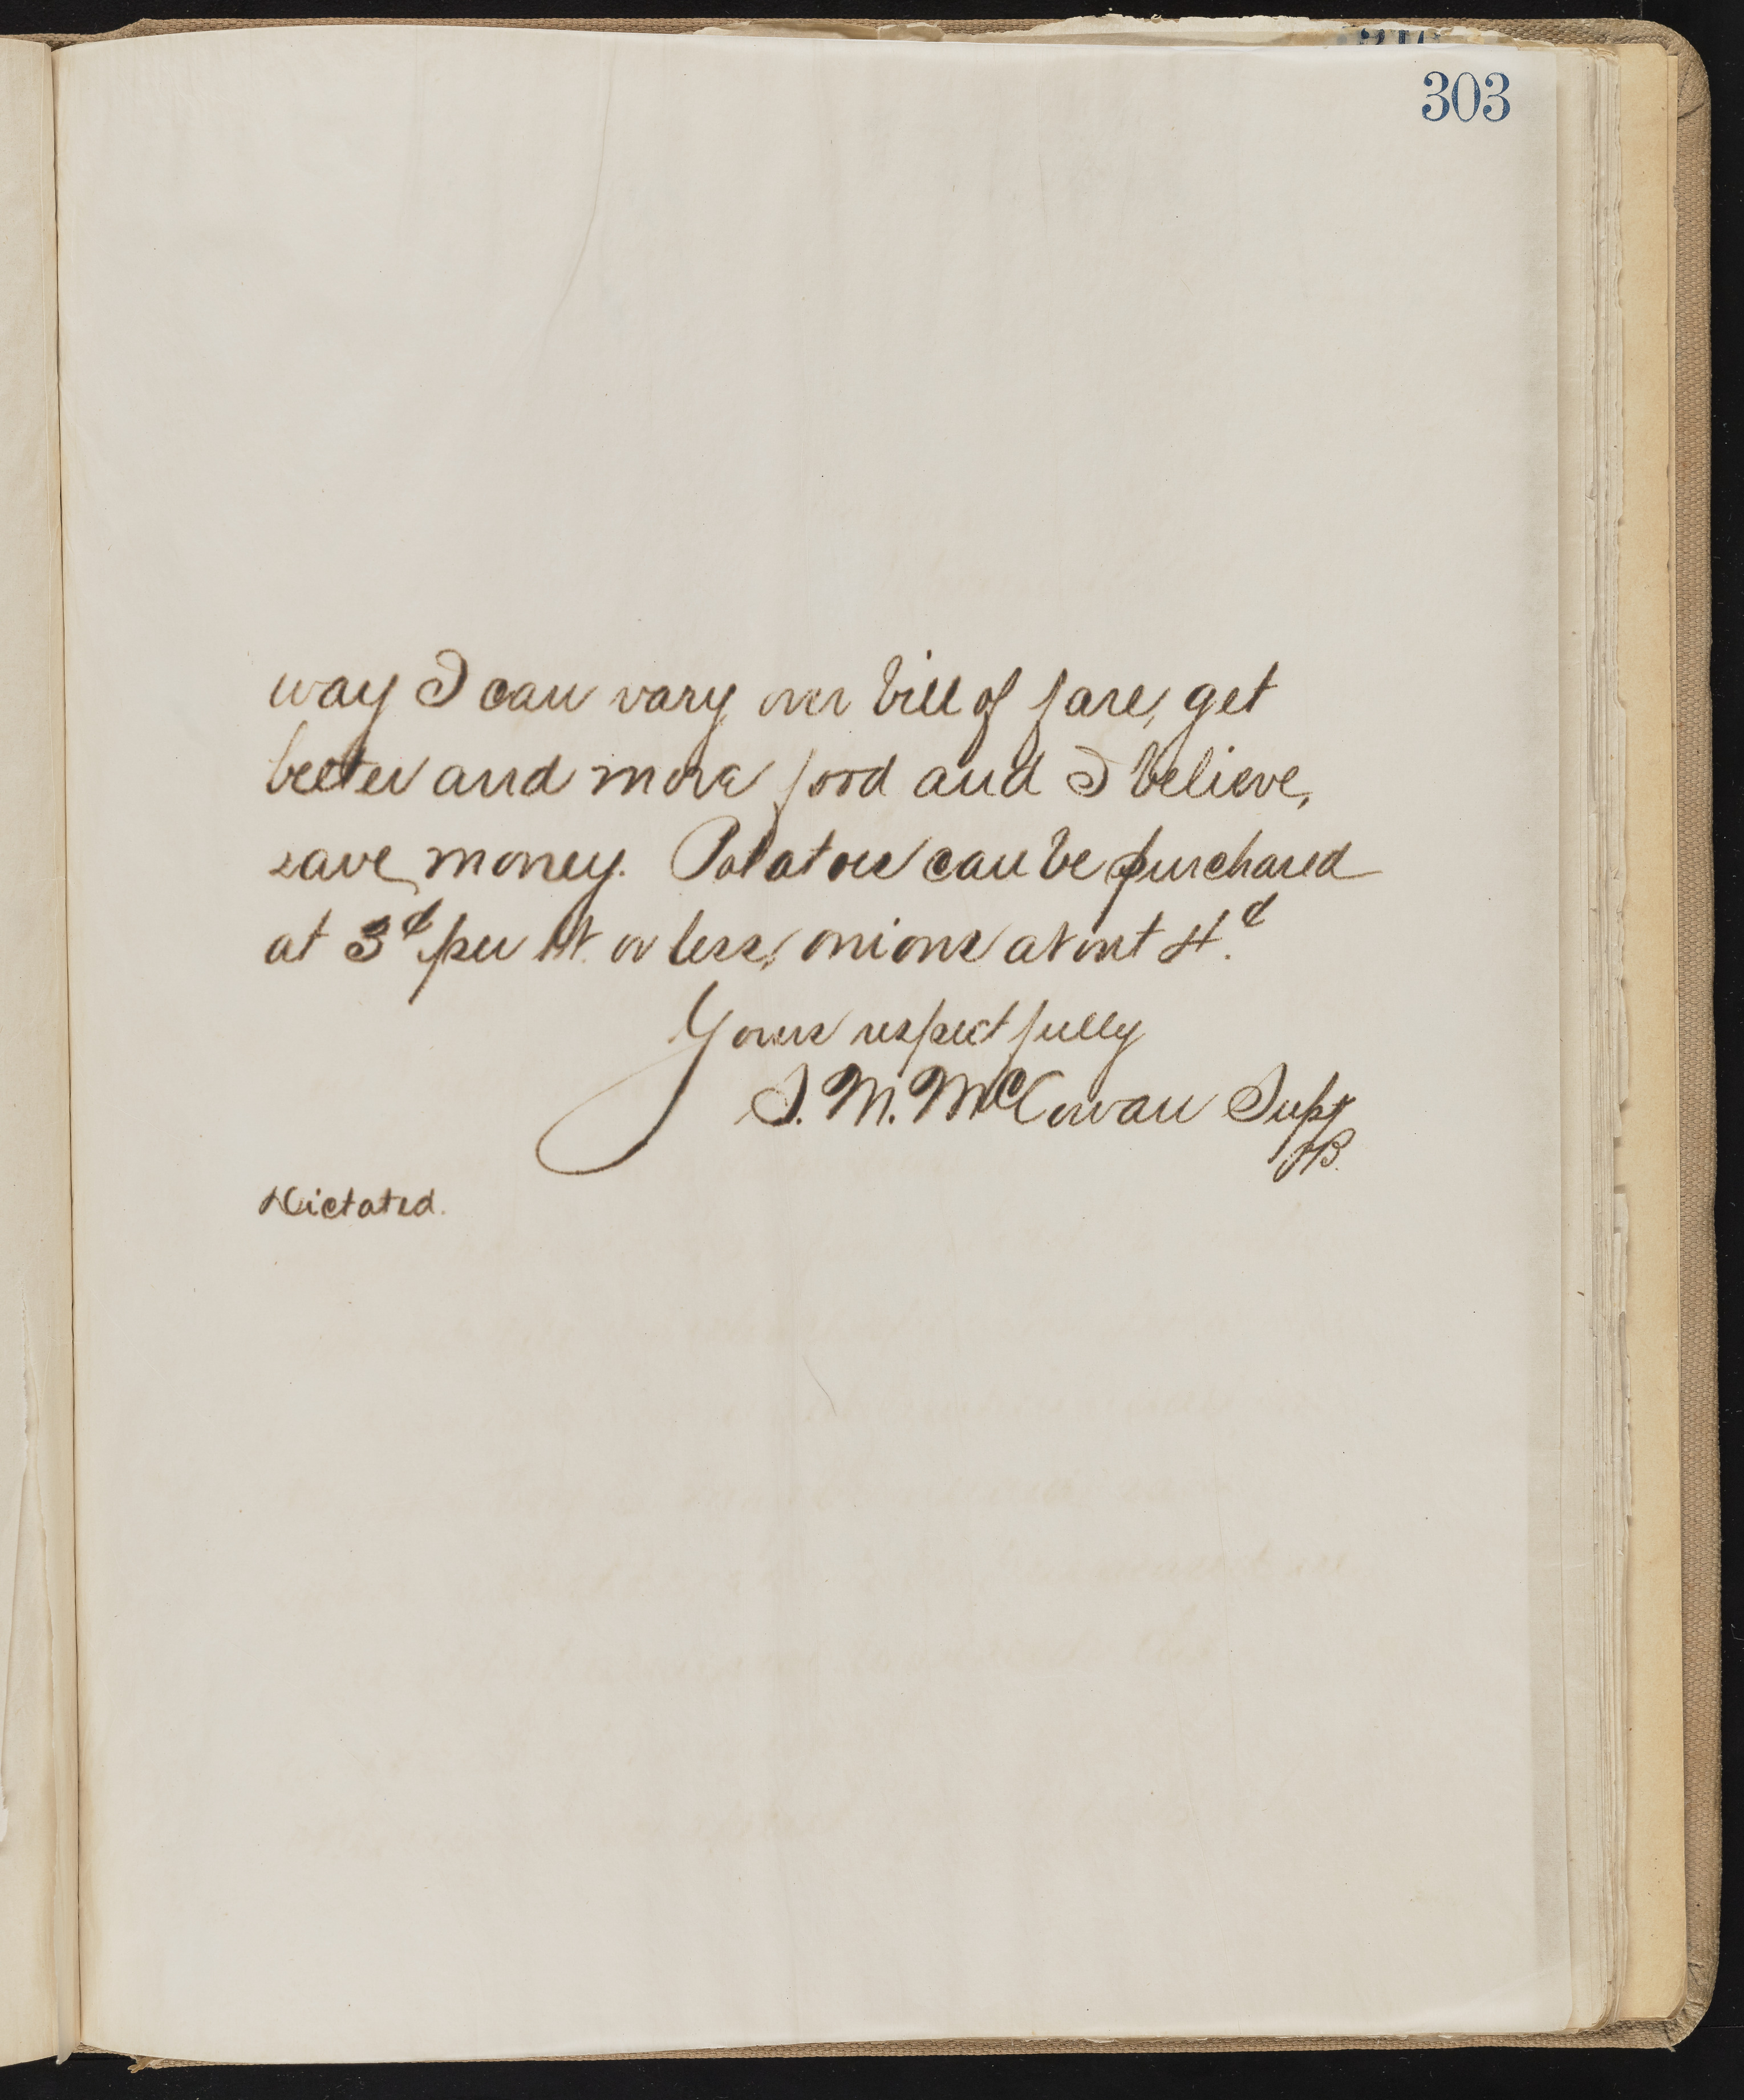 303
way I can vary our bill of fare, get
better and more food and I believe,
save money. Potatoes can be purchased
at 3¢ per lb. or less, onions about 4.¢
Yours respectfully
S. M. McCowan Supt
Dictated.